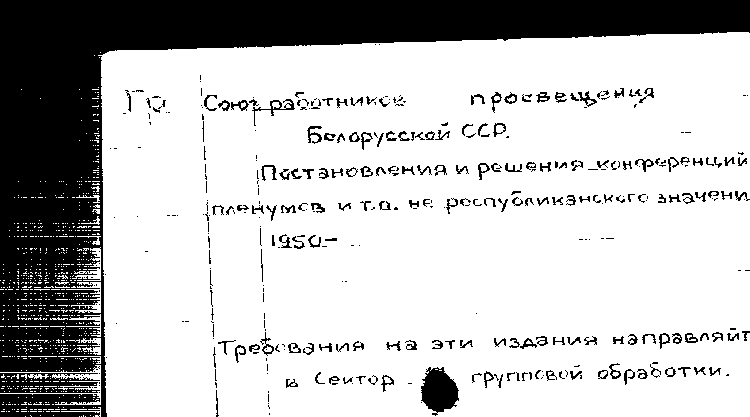 Гр Союз работников просвещения
Белорусской ССР.
Постановления и решения конференций
пленумов и т.п. не республиканского значени
1950-
Требования на эти издания направляйт
в Сектор групповой обработки.